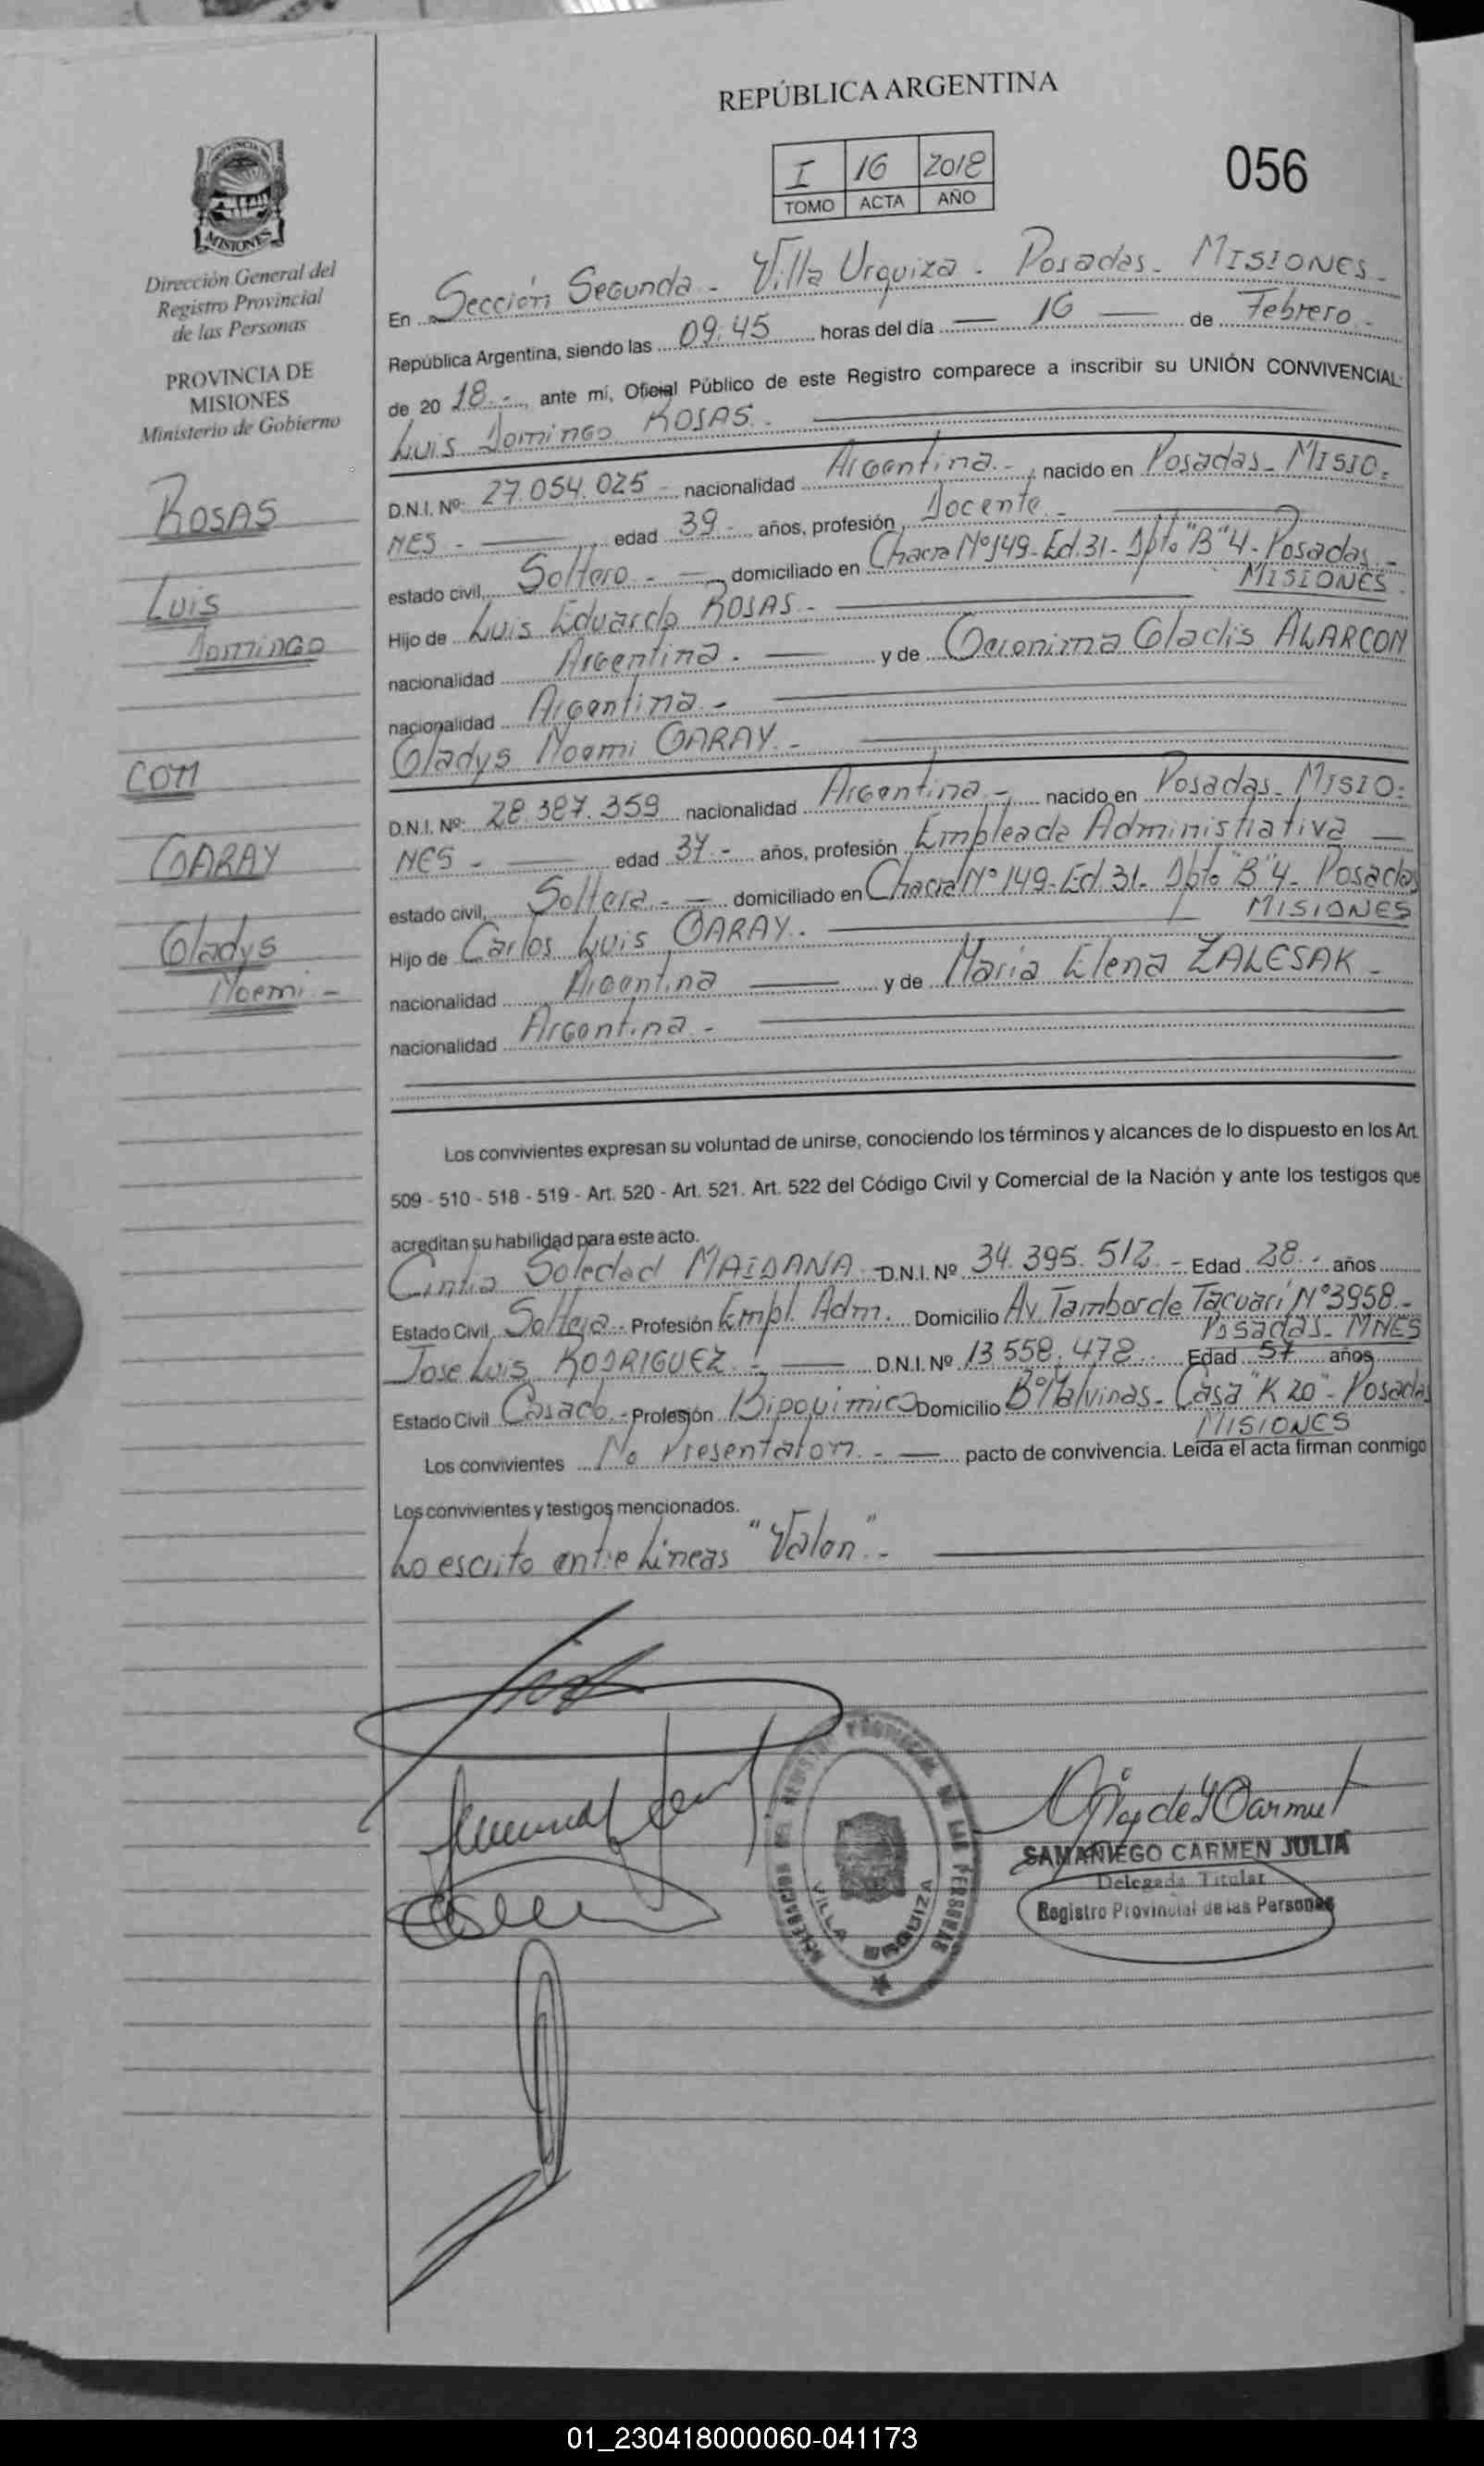 REPÚBLICA ARGENTINA
I 16 2018
TOMO ACTA AÑO
056
PROVINCIA DE
MISIONES
Dirección General del
Registro Provincial
de las Personas
PROVINCIA DE
MISIONES
Ministerio de Gobierno
ROSAS
Luis
Domingo
COM
GARAY
Gladys
Noemi.-
En Sección Segunda - Villa Urquiza - Posadas - MISIONES -
República Argentina, siendo las 09:45 horas del día — 16 — de Febrero -
de 2018.-, ante mí, Oficial Público de este Registro comparece a inscribir su UNIÓN CONVIVENCIAL:
Luis Domingo ROSAS.-
D.N.I. Nº: 27.054.025 - nacionalidad Argentina.-, nacido en Posadas - MISIO=
NES - — edad 39.- años, profesión Docente -
estado civil, Soltero - — domiciliado en Chacra Nº149- Ed.31- Dpto "B" 4- Posadas -
MISIONES.
Hijo de Luis Eduardo ROSAS -
nacionalidad Argentina. - — y de Geronima Gladis ALARCON
nacionalidad Argentina -
Gladys Noemi GARAY.-
D.N.I. Nº: 28.387.359 nacionalidad Argentina - nacido en Posadas - MISIO=
NES - — edad 37.- años, profesión Empleada Administrativa —
estado civil, Soltera - — domiciliado en Chacra Nº 149- Ed.31- Dpto "B" 4- Posadas
MISIONES
Hijo de Carlos Luis GARAY. -
nacionalidad Argentina — y de Maria Elena ZALESAK -
nacionalidad Argentina -
Los convivientes expresan su voluntad de unirse, conociendo los términos y alcances de lo dispuesto en los Art.
509 - 510 - 518 - 519 - Art. 520 - Art. 521. Art. 522 del Código Civil y Comercial de la Nación y ante los testigos que
acreditan su habilidad para este acto.
Cintia Soledad MAIDANA D.N.I. Nº 34.395.512 - Edad 28.- años
Estado Civil, Soltera - Profesión Empl. Adm. Domicilio Av. Tambor de Tacuari Nº3958.-
Posadas - MNES
Jose Luis RODRIGUEZ - — D.N.I. Nº 13.558.478 Edad 57 años
Estado Civil Casado - Profesión Bioquimico Domicilio Bº Malvinas - Casa "K 20" - Posadas
MISIONES
Los convivientes No Presentaron - — pacto de convivencia. Leída el acta firman conmigo
Los convivientes y testigos mencionados.
Lo escrito entre Lineas "Valen".-
VILLA URQUIZA
SAMANIEGO CARMEN JULIA
Delegada Titular
Registro Provincial de las Personas
01_230418000060-041173